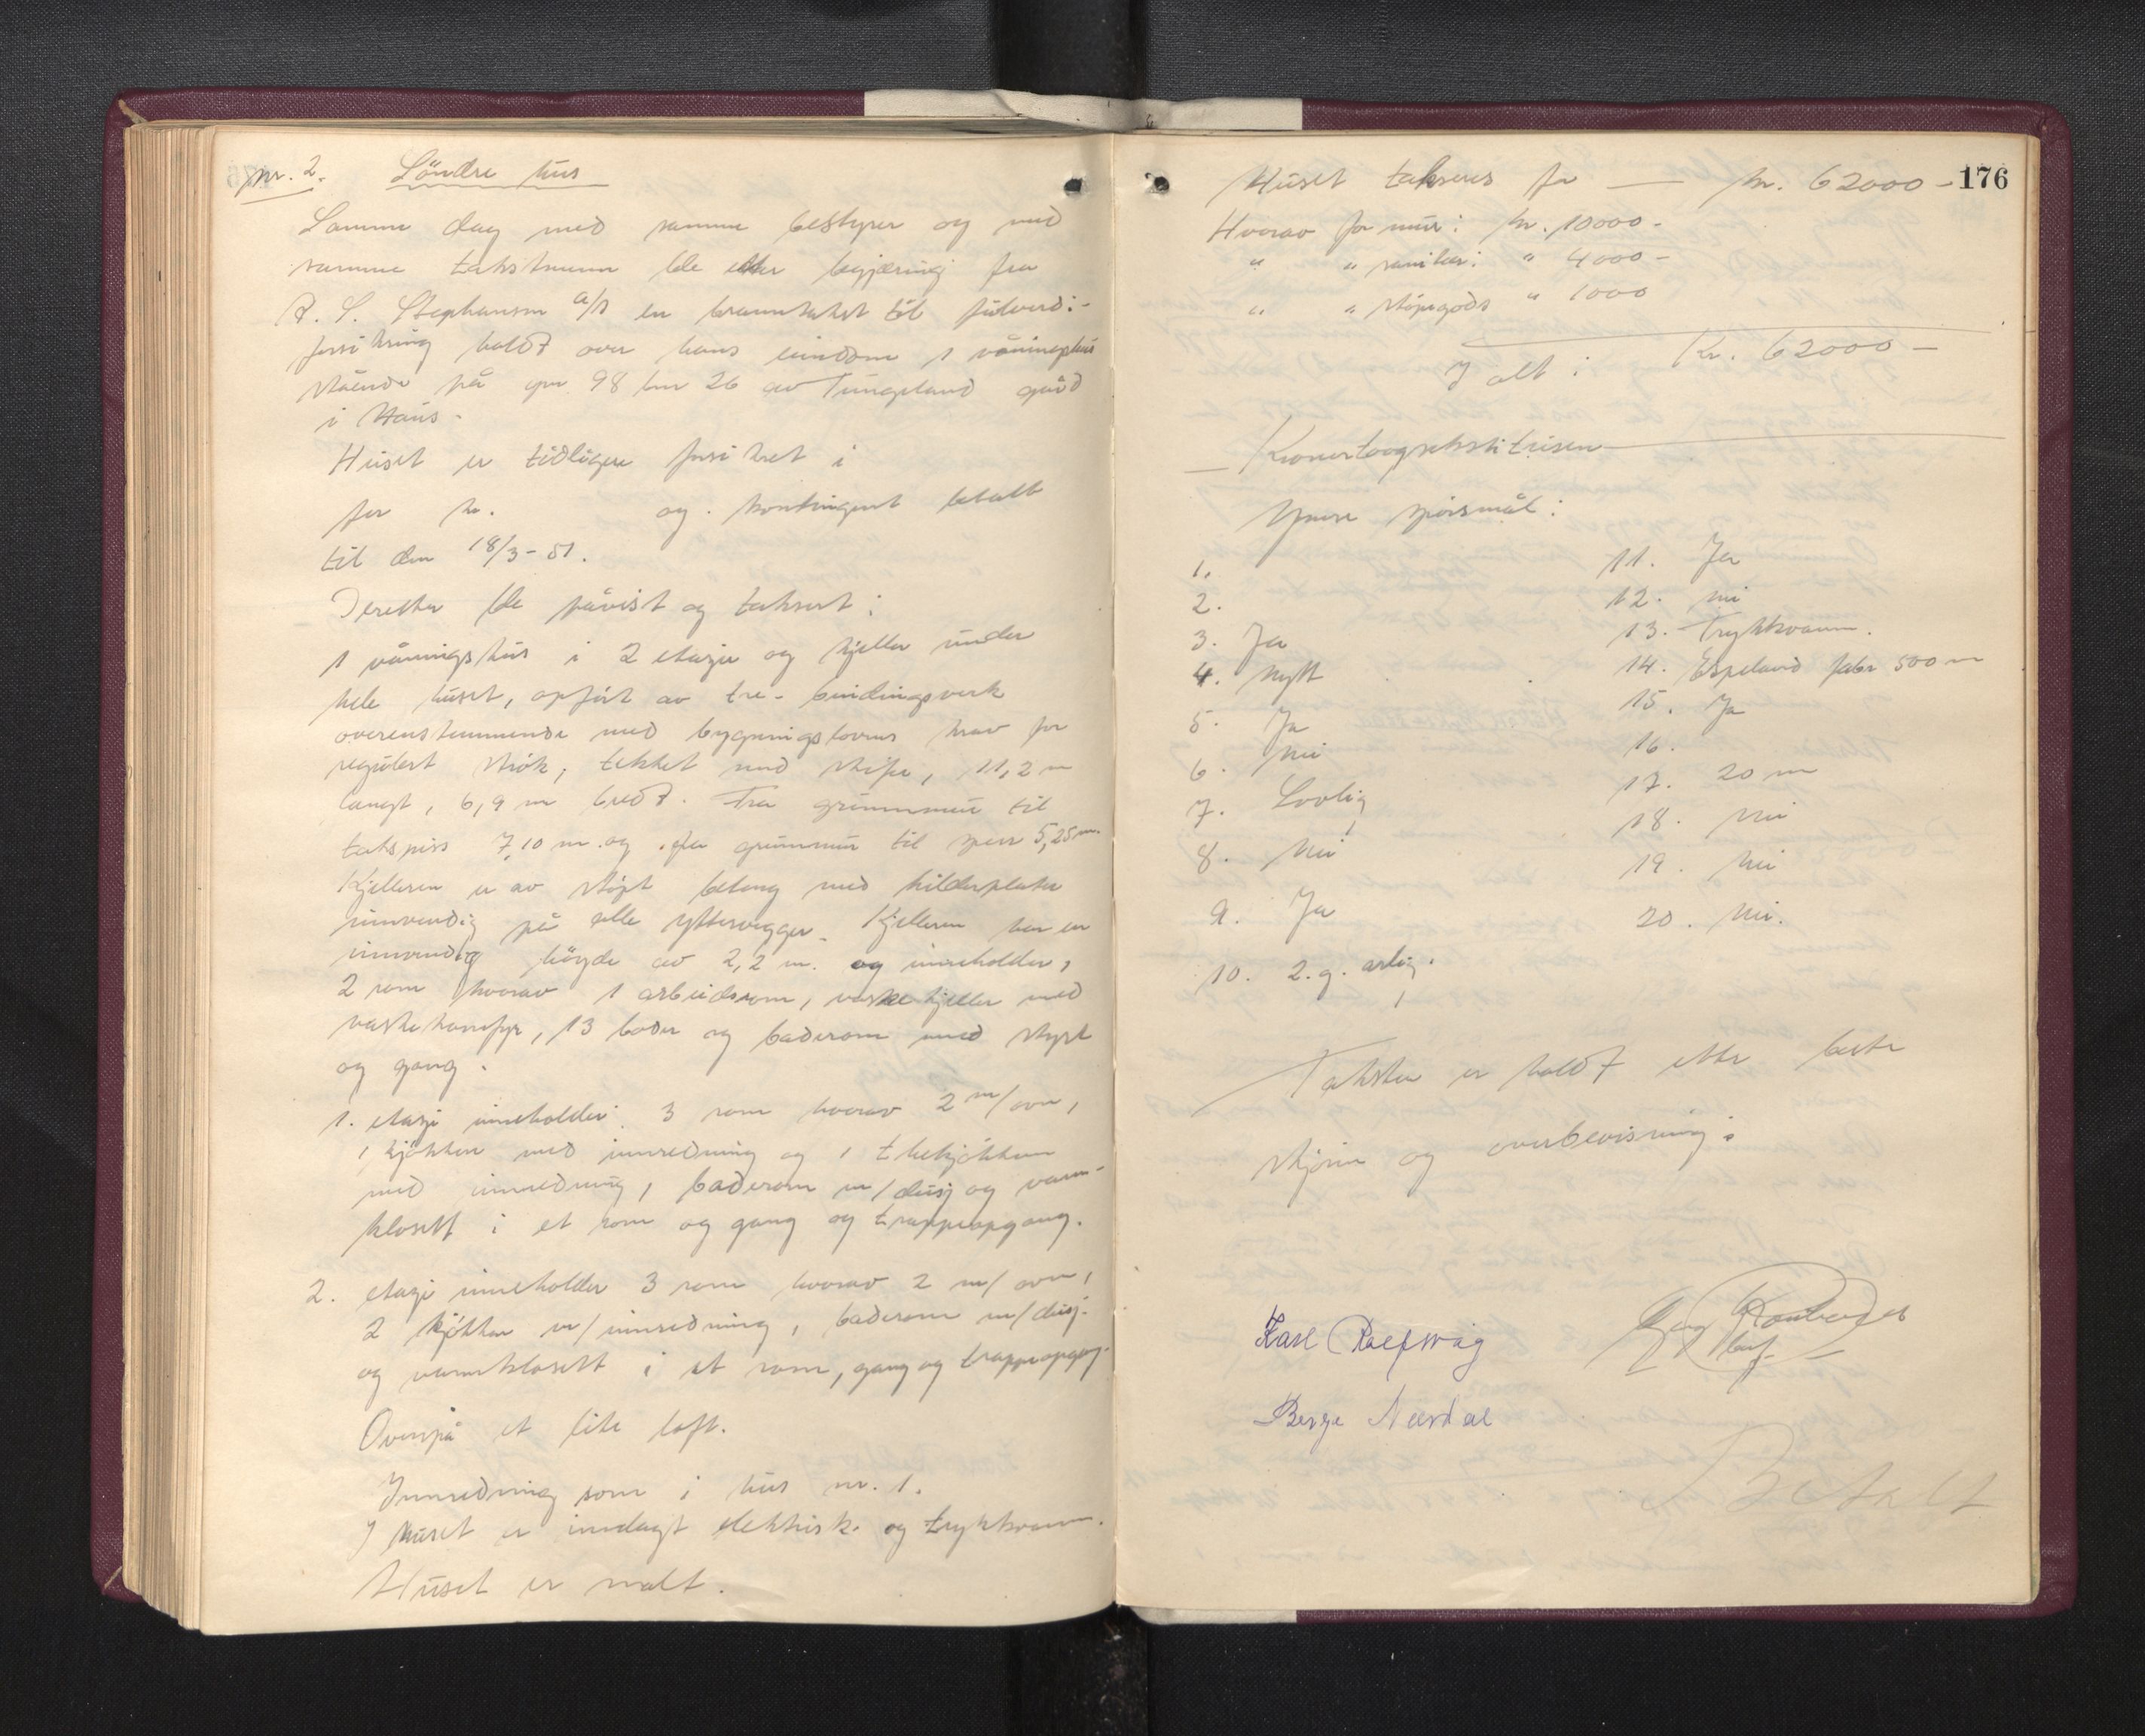 nr. 2. Søndre hus
Samme dag med samme bestyrer og med
samme takstmenn ble etter begjæring fra
P. S. Stephansen a/s en branntakst til fullverdi-
forsikring holdt over hans eiendom 1 våningshus
stående på gnr 98 bnr 26 av Tungeland gård
i Haus.
Huset er tidligere forsikret i
for kr. og kontingent betalt
til den 18/3-51.
Deretter ble påvist og taksert:
1 våningshus i 2 etasjer og kjeller under
hele huset, opført av tre-bindingsverk
overenstemmende med bygningslovens krav for
regulert strøk, tekket med skifer, 11,2 m
langt, 6,9 m bredt. Fra grunnmur til
takspiss 7,10 m og fra grunnmur til sperr 5,25 m.
Kjelleren er av støpt betong med kilderplater
innvendig på alle yttervegger. Kjelleren har en
innvendig høyde av 2,2 m. og inneholder,
2 rom hvorav 1 arbeidsrom, vaskekjeller med
vaskekomfyr, 13 boder og baderom med styrt
og gang.
1. etasje inneholder: 3 rom hvorav 2 m/ovn,
1 kjøkken med innredning og 1 thekjøkken
med innredning, baderom m/dusj og vann-
klosett i et rom og gang og trappeopgang.
2. etasje inneholder 3 rom hvorav 2 m/ovn,
2 kjøkken m/innredning, baderom m/dusj.
og vannklosett i et rom, gang og trappeopgang.
Overpå et lite loft.
Innredning som i hus nr. 1.
I huset er innlagt elektrisk og trykkvann.
Huset er malt.
176
Huset takseres for — kr. 62000-
Hvorav for mur: kr. 10000-
" " sanitær: " 4000-
" " støpegods " 1000
I alt: Kr. 62000-
Ymse spørsmål:
1.
2.
3. Ja
4. Nytt
5. Ja
6. Nei
7. Lovlig
8. Nei
9. Ja
10. 2. g. årlig.
11. Ja
12. nei
13. Trykkvann.
14. Espeland fabr 500 m
15. Ja
16.
17. 20 m
18. Nei
19. Nei
20. Nei.
Taksten er holdt etter beste
skjønn og overbevisning.
Karl Rolfsvåg
Berge Næsdal
Betalt